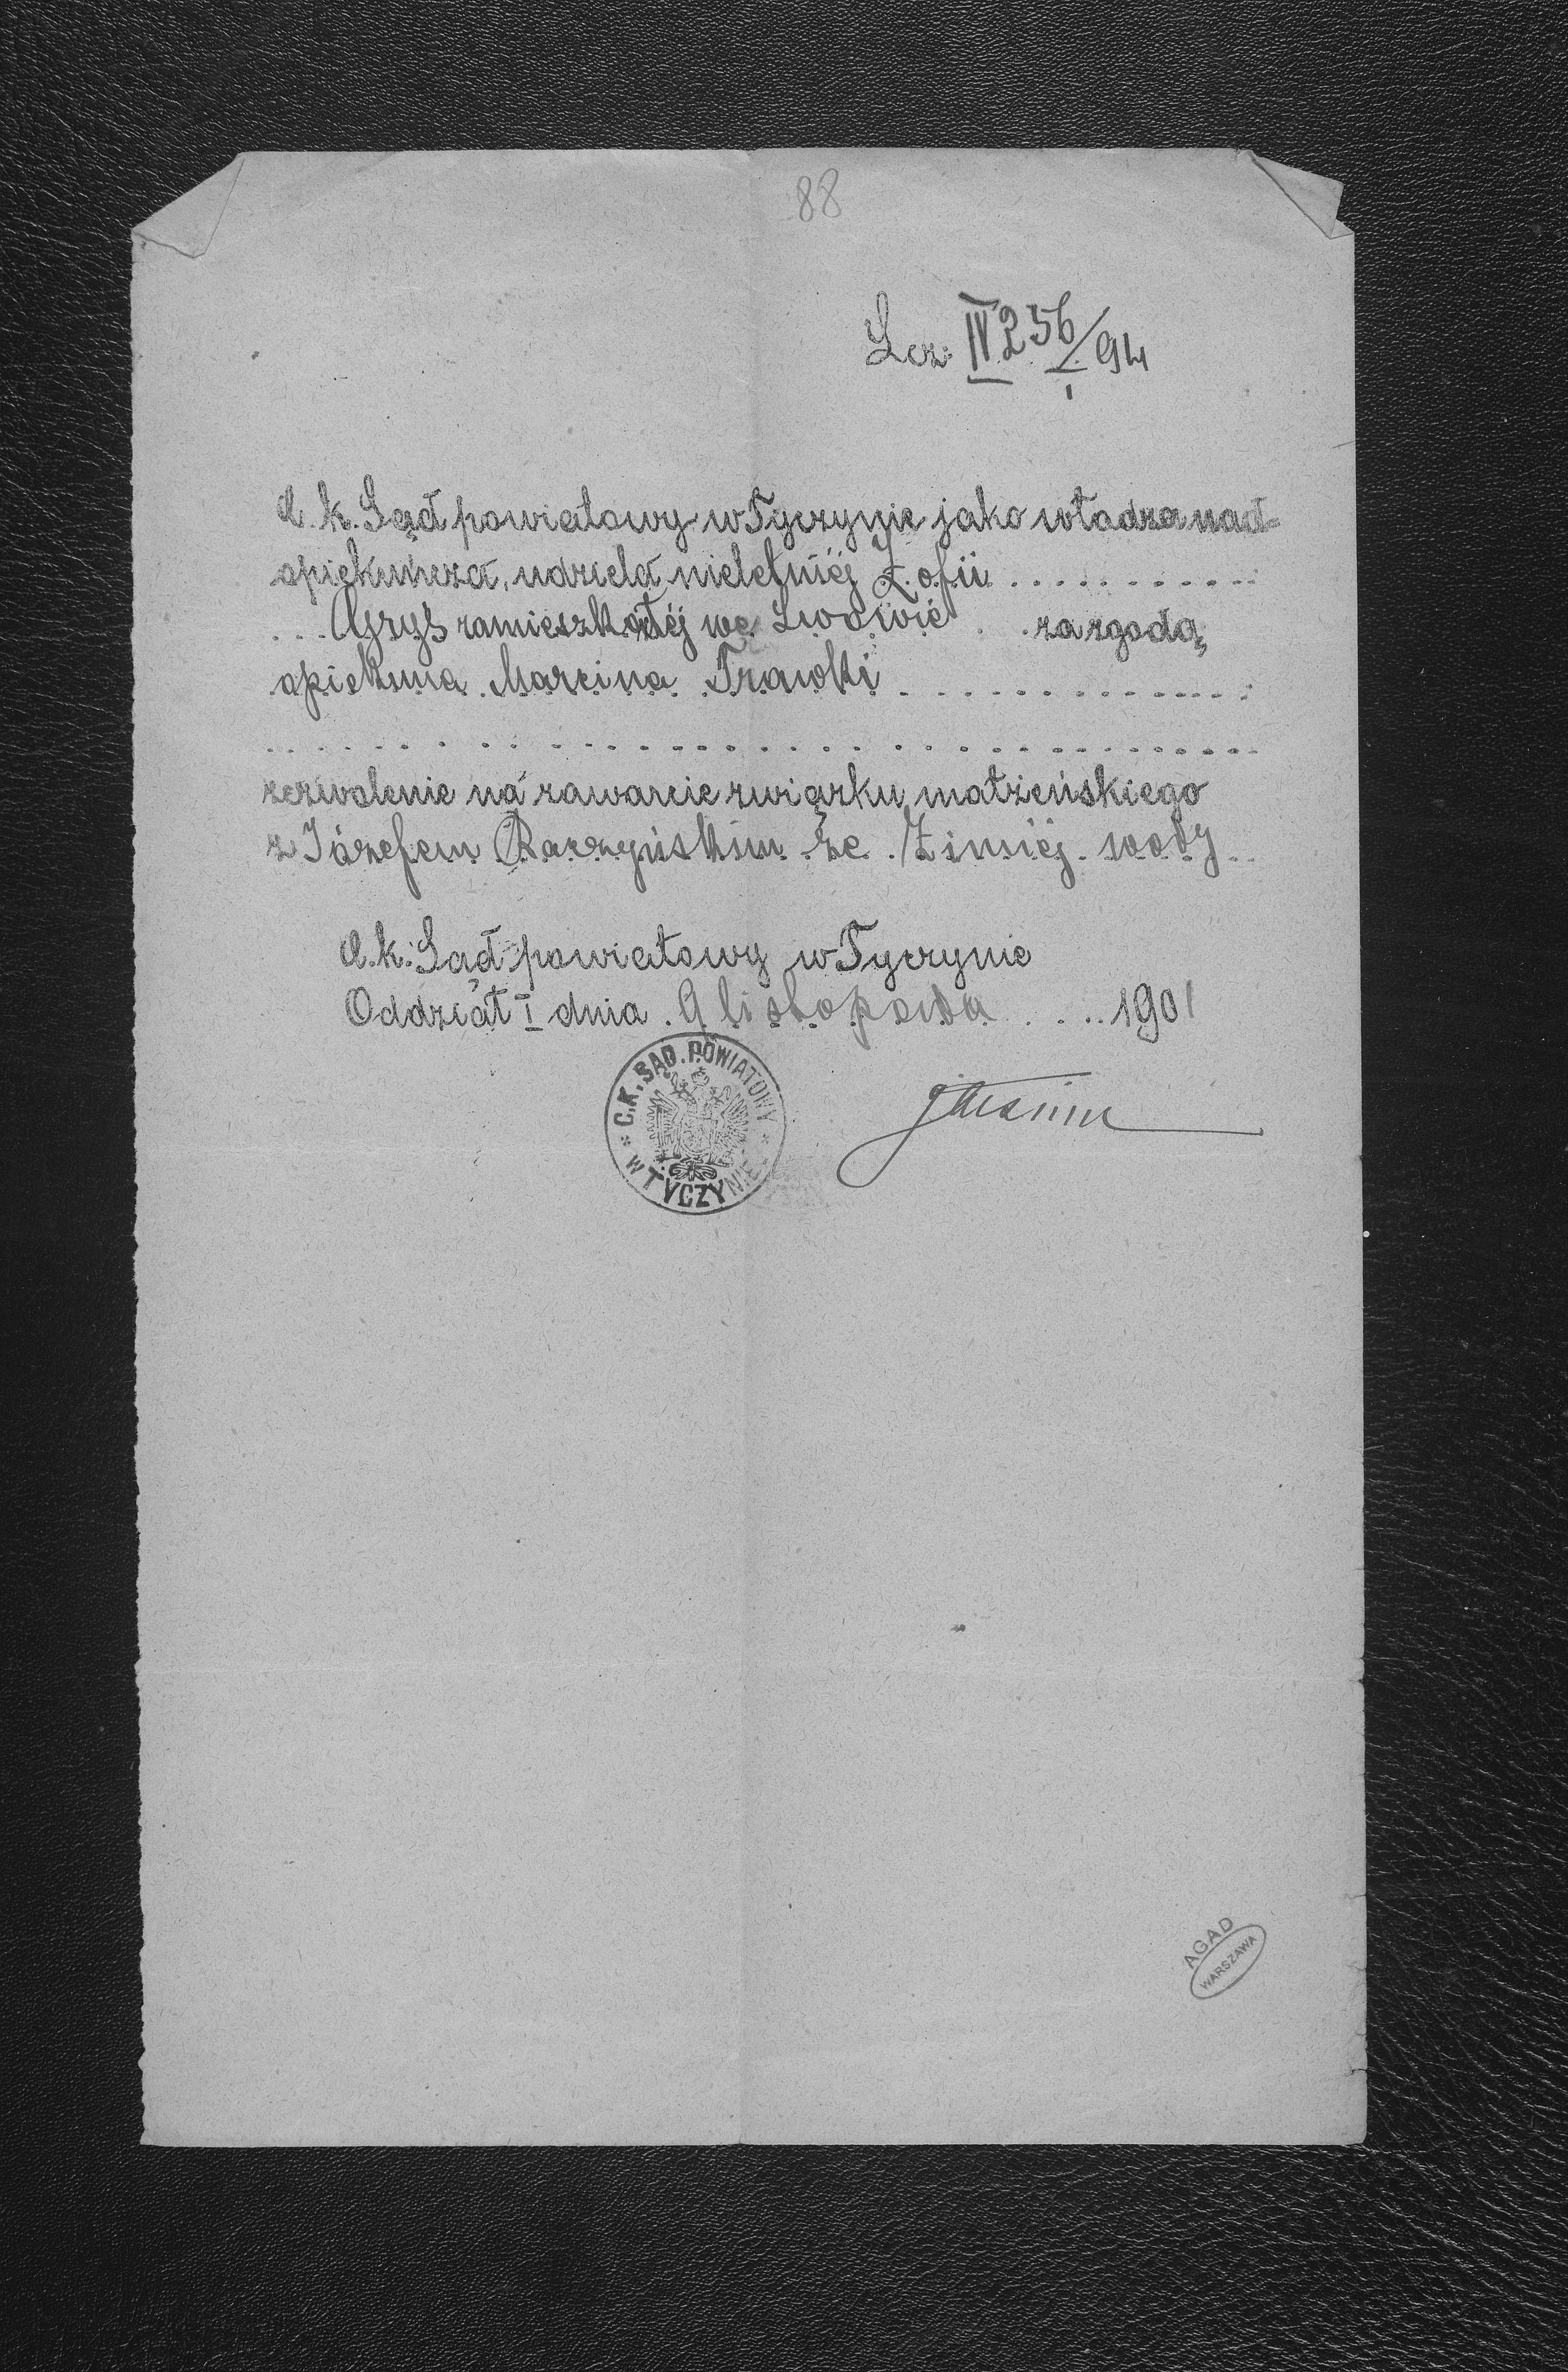 88
Lcz. IV 256/94
I
C. k. Sąd powiatowy w Tyczynie jako władza nad-
opiekuńcza, udziela nieletniéj Zofii . . . . . . . . . . . .
. . . Gryś zamieszkałéj we Lwowie . . za zgodą
opiekuna Marcina Trawki . . . . . . . . . . . . . . .
. . . . . . . . . . . . . . . . . . . . . . . . . . . . . .
zezwolenie na zawarcie związku małżeńskiego
z Józefem Raczyńskim ze Zimnéj wody
C. k. Sąd powiatowy w Tyczynie
Oddział I dnia . 9 listopada . . . . 1901
C.K. SĄD. POWIATOWY
W TYCZYNIE
AGAD
WARSZAWA